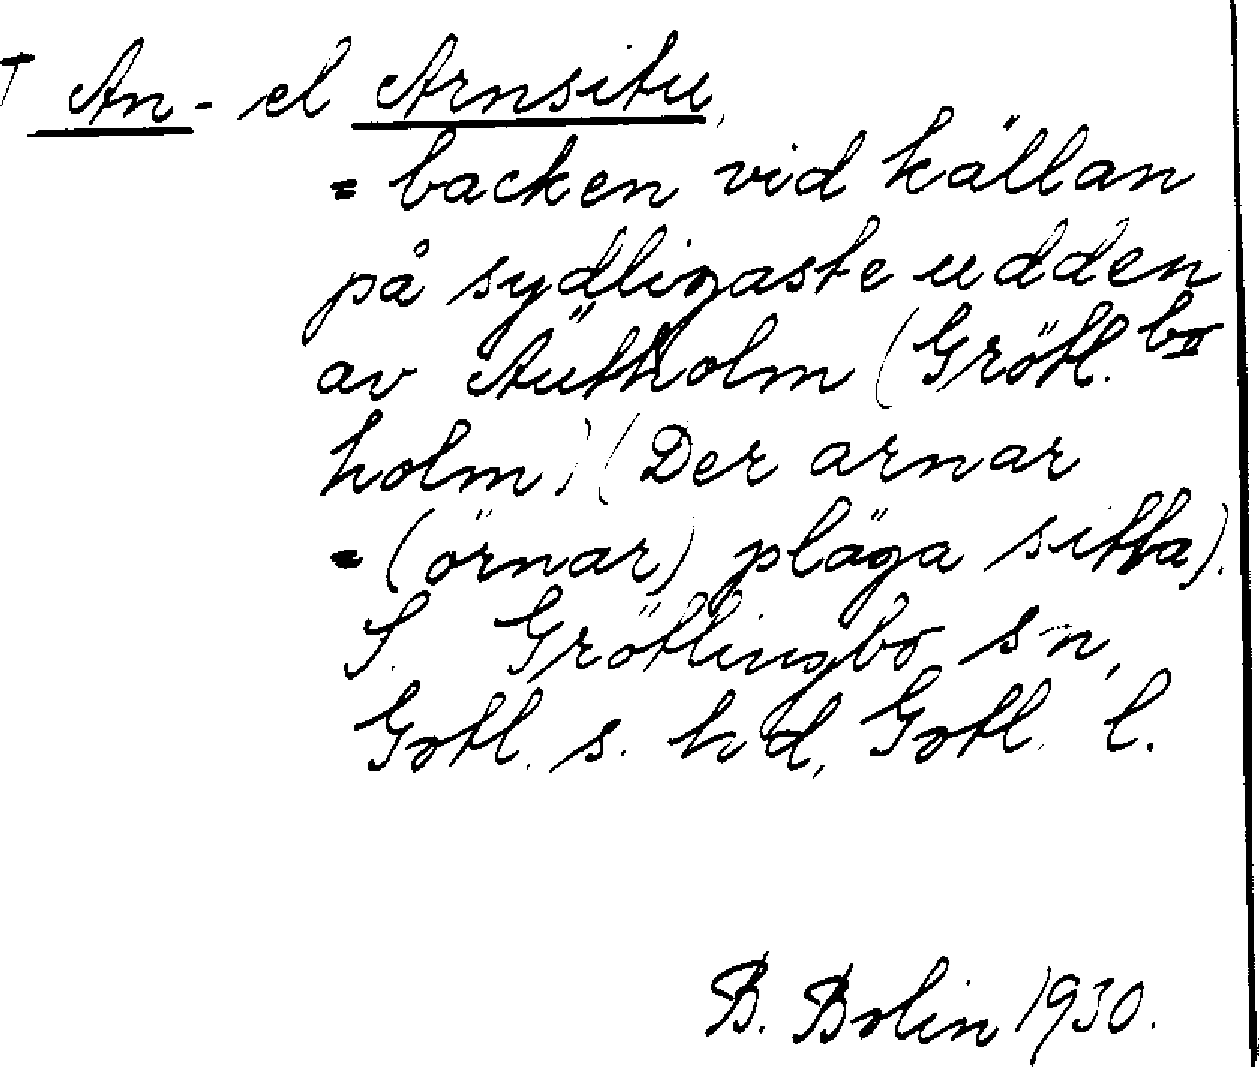 An- el Arnsitu,
= backen vid källan
på sydligaste udden
av Autholm (Grötl. bo
holm) (Der arnar
= (örnar) pläga sitta).
S. Grötlingbo sn,
Gotl. s. hd, Gotl. l.
B. Bolin 1930.